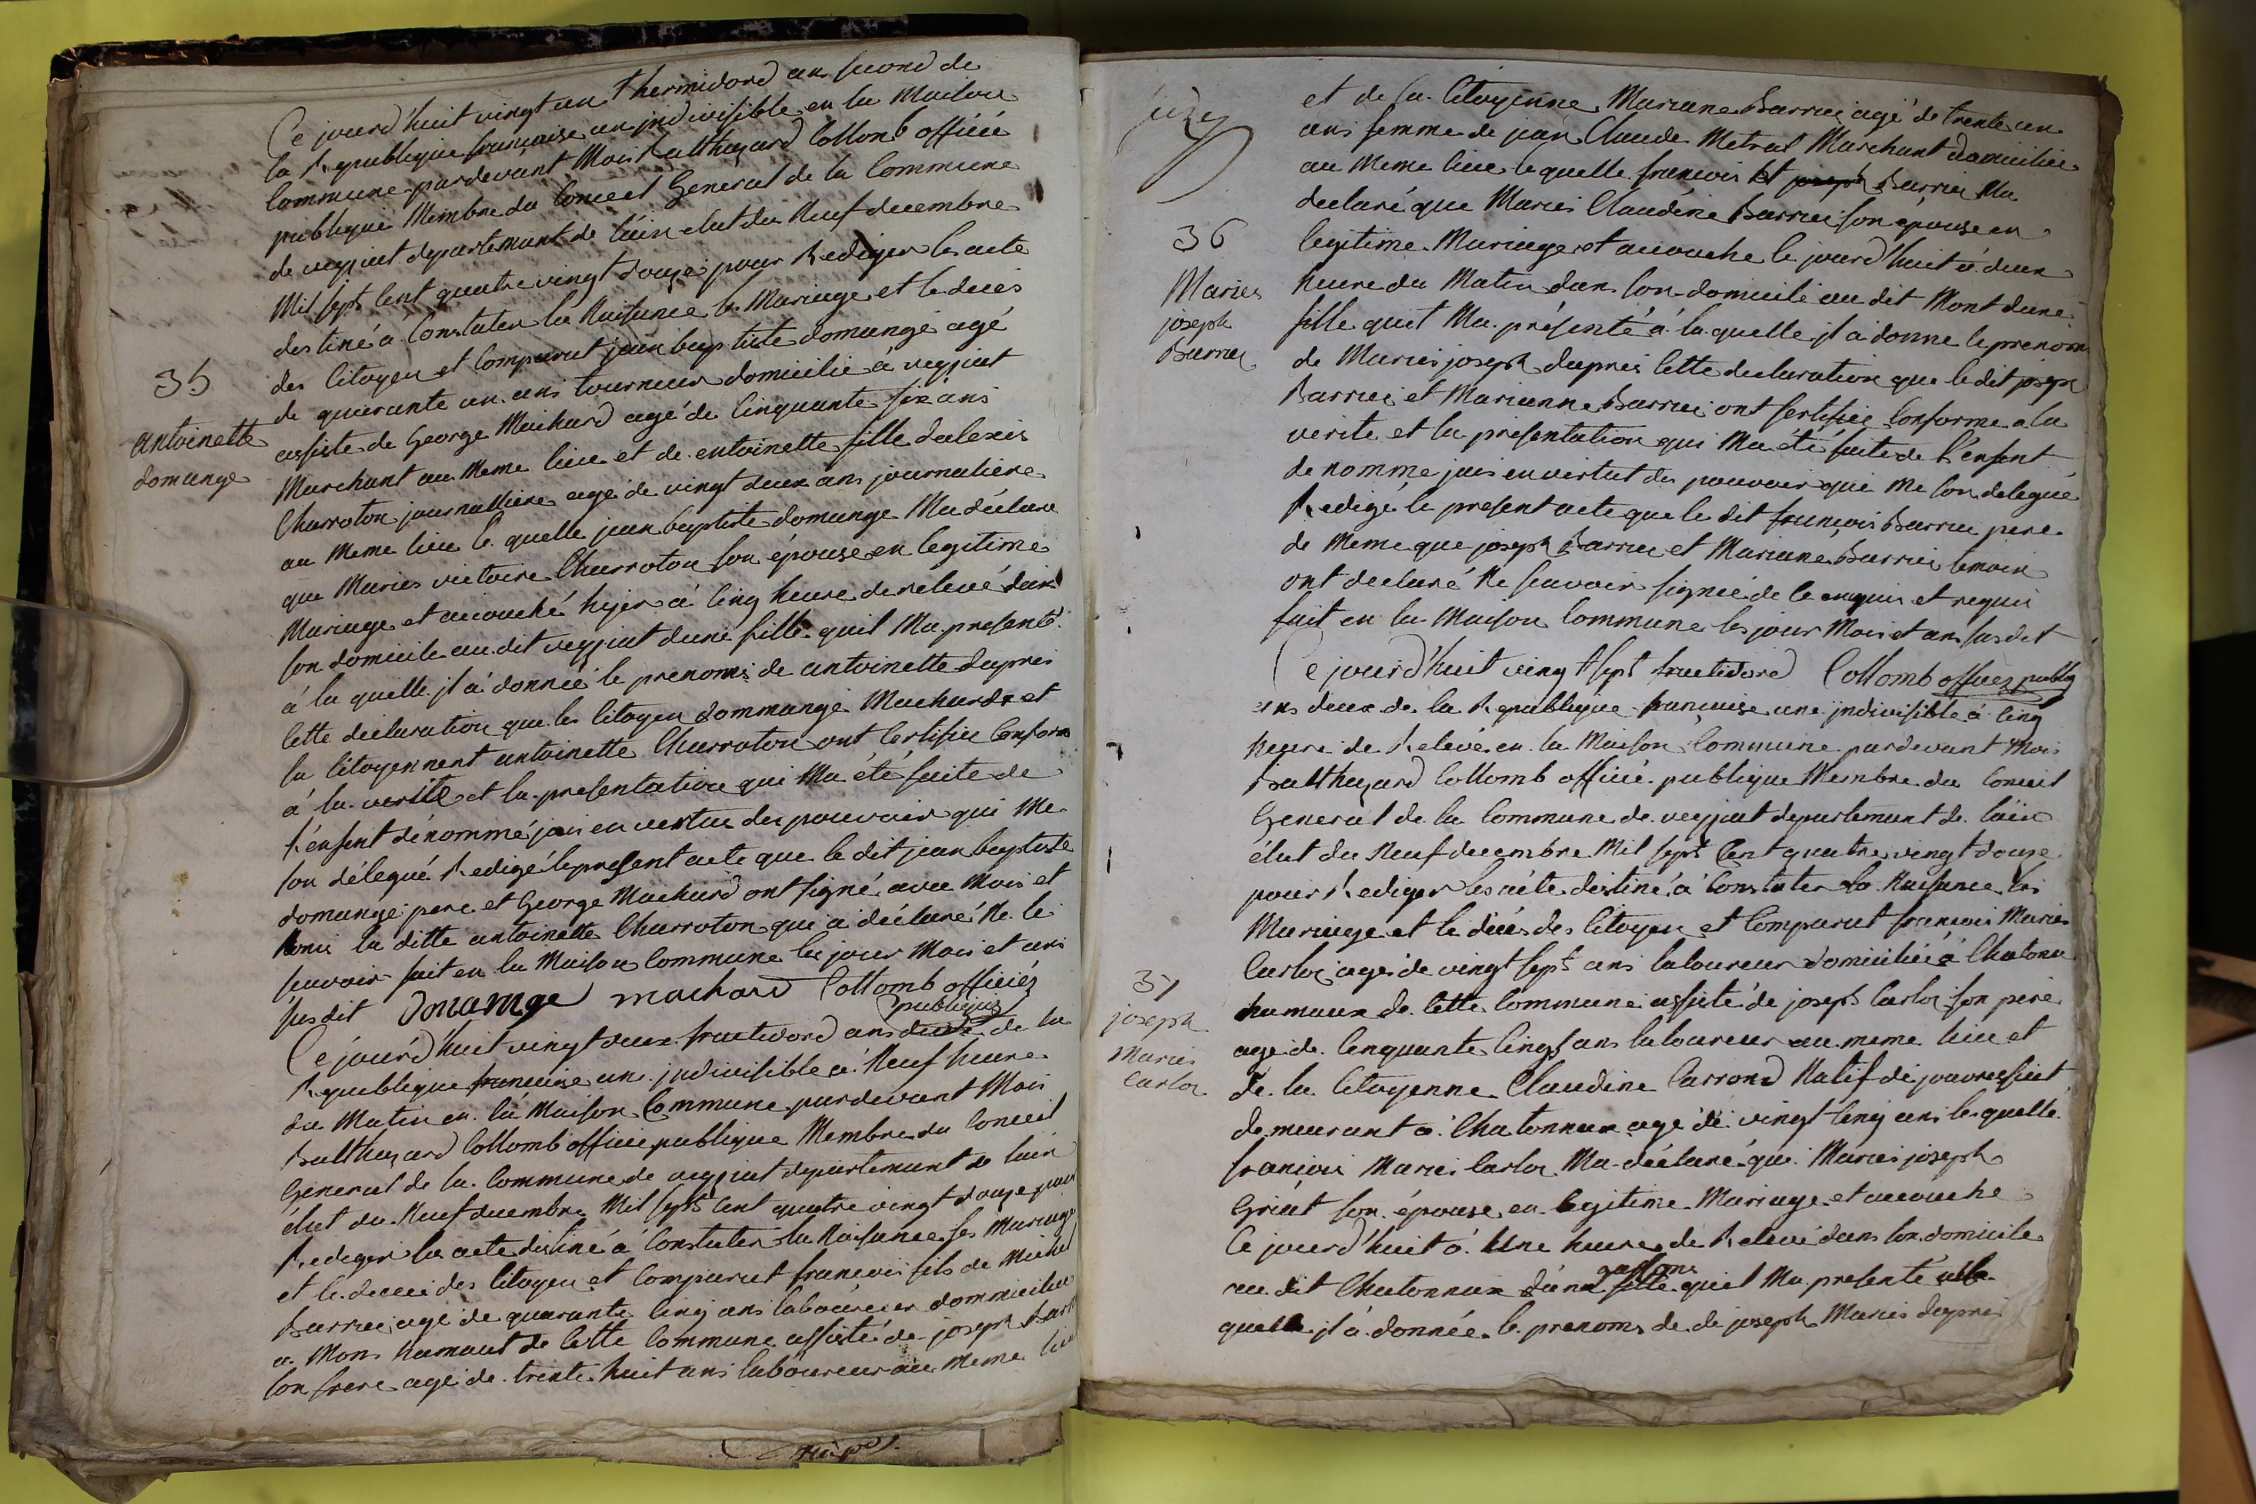 Ce jourd'huit vingt un thermidord ans second de
la Republique française un jndivisible en la Maison
Commune pardevant Mois Balthazard Collomb officié
publique Membre du Conceil General de la Commune
de veyziat departemant de l'ain elut du Neuf decembre
Mil sept Cent quatre vingt douze pour Rediger les acte
destiné a Constater la Naisance le Mariage et le deces
des Citoyen et Comparut jean baptiste domange agé
de quarante un ans tourneur domicilié à veyziat
assiste de George Machard agé de Cinquante six ans
Marchant au Meme lieu et de entoinette fille dalexis
Charroton journalliere agé de vingt deux ans journaliere
au Meme lieu le quelle jean baptiste domange Ma déclare
que Maries victoire Charroton son épouse en legitime
Mariage et acouché hyer à Cinq heure de relevé dans
son domicile au dit veyziat dune fille quil Ma presenté
à la quelle jl a donneé le prenoms de antoinette dapres
Cette declaration que les Citoyen dommange Machard et
la Citoyennent antoinette Charroton ont Certifiée Conform
à la verité et la presentation qui Ma été faite de
l'enfent dénommé jais en vertue des pouvoir qui Me
son délegué Redigé le present acte que le dit jean baptiste
domange pere et George Machard ont signé avec Mois et
Nonis la ditte antoinette Charroton qui a déclaré Ne le
scavoir fait en la Maison Commune les jour Mois et ans
susdit Domange machard Collomb officiéz
publique
35
antoinette
domange
Ce jourd'huit vingt deux fructidord ans deux de la
Republique francaise une jndivisible à Neuf heure
du Matin en la Maison Commune pardevant Mois
Balthazard Collomb officié publique Membre du Conceil
General de la Commune de veyziat departemant de lain
élut du Neuf decembre Mil sept Cent quatre vingt douze pour
Rediger les acte destiné à Constater la Naisance les Mariage
et le deceé des Citoyen et Comparut francois fils de Michel
Barrué agé de quarante Cinq ans laboureur dommicilié
a Mons hamaut de Cette Commune assisté de joseph Barr
son frere agé de trente huit ans laboureur au Meme lieu
et de la Citoyenne Mariane Barrué agé de trente un
ans femme de jean Claude Metral Marchant domicilié
au Meme lieu le quelle francois Barrué Ma
declaré que Maries Claudine Barrué son épouse en
legitime Mariage et acouche le jourd'huit à deux
heure du Matin dans son domicile au dit Mont dune
fille quit Ma présenté à la quelle jl a donne le prenom
de Maries joseph dapres Cette declaration que le dit joseph
Barrué et Marianne Barrué ont sertifiée Conforme a la
verite et la presentation qui Ma été faite de l'enfent
de nomme jais en vertut des pouvoir qui Me son delegué
Redigé le present acte que le dit françois Barrué pere
de Meme que joseph Barrué et Mariane Barrué temoin
ont declaré Ne scavoir signée de le enquis et requis
fait en la Maison Commune les jour Mois et ans susdit
Collomb officiez publiq
36
Maries
joseph
Barrué
Ce jourd'huit vingt sept fructidord
ans deux de la Republique francaise une jndivisible à Cinq
heure de Relevé en la Maison Commune pardevant Mois
Balthazard Collomb officié publique Membre du Conceil
General de la Commune de veyziat departemant de lain
élut du Neuf decembre Mil sept Cent quatre vingt douze
pour Rediger les acte destiné à Constater la Naisance les
Mariage et le décés des Citoyen et Comparut francois Maries
Carloz agé de vingt sept ans laboureur domiciliée à Chatona
hamaux de Cette Commune assisté de joseph Carloz son pere
age de Cenquante Cinq ans laboureur au meme lieu et
de la Citoyenne Claudine Carrond Natif de jouvressiat
demeurant à Chatonnax agé de vingt Cinq ans le quelle
francois Maries Carloz Ma déclaré que Maries joseph
Griat son épouse en legitime Mariage et acouche
Ce jourd'huit à une heure de Relevé dans son domicile
au dit Chatonnax d'une garsons fille quil Ma presenté
quelle jl à donnée le prenoms de de joseph Maries dapres
37
joseph
Maries
Carloz